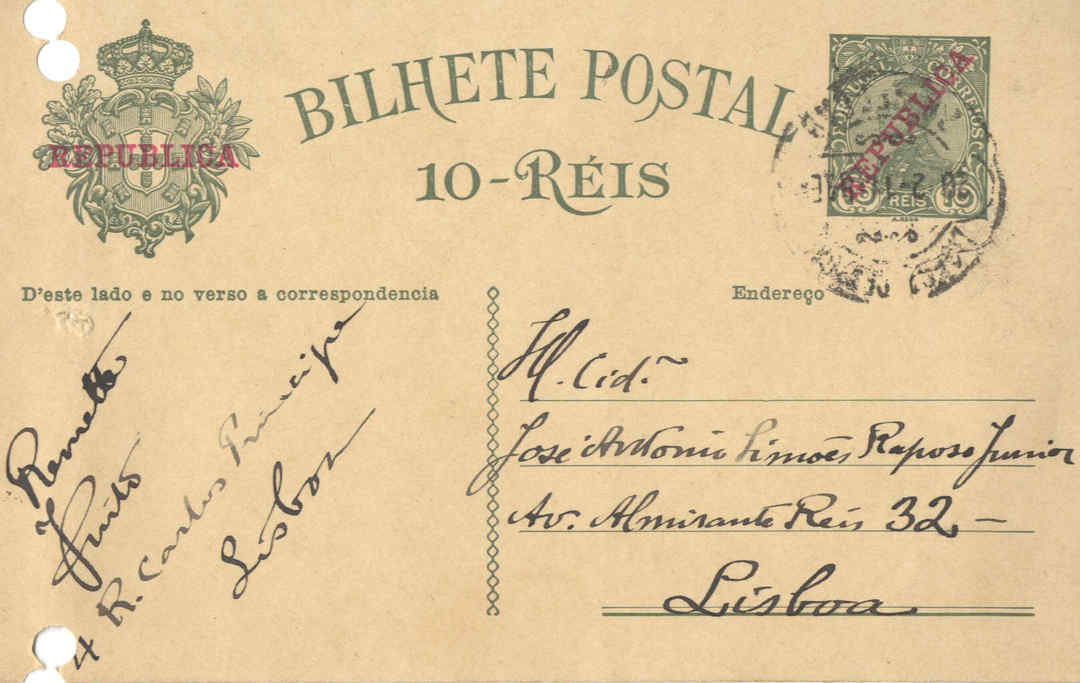 REPUBLICA
BILHETE POSTAL
10-RÉIS
REPUBLICA
PORTUGAL CORREIOS
REIS
D'este lado e no verso a correspondencia
Endereço
Remette
4 R. Carlos Principe
Lisboa
Il. Cid.
José Antonio Simões Raposo Junior
Av. Almirante Reis 32 -
Lisboa